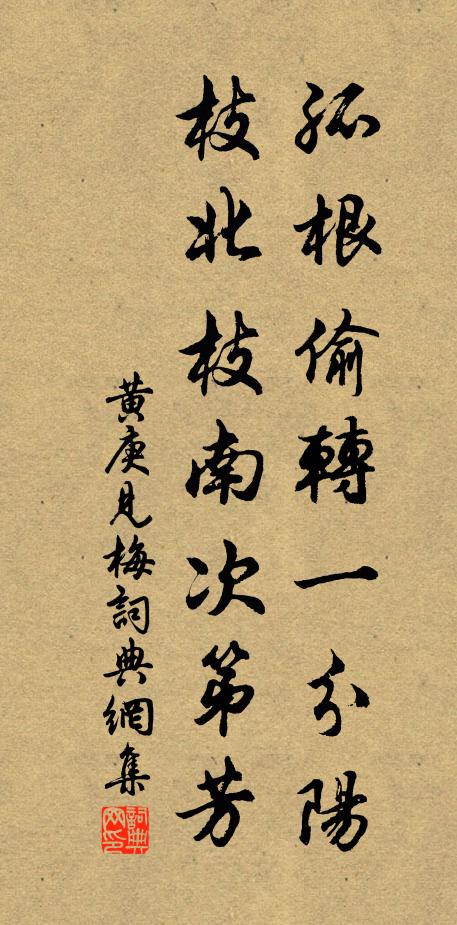 孤根偷轉一分陽
枝北枝南次第芳
黄庚見梅詞典網集
詞典網印